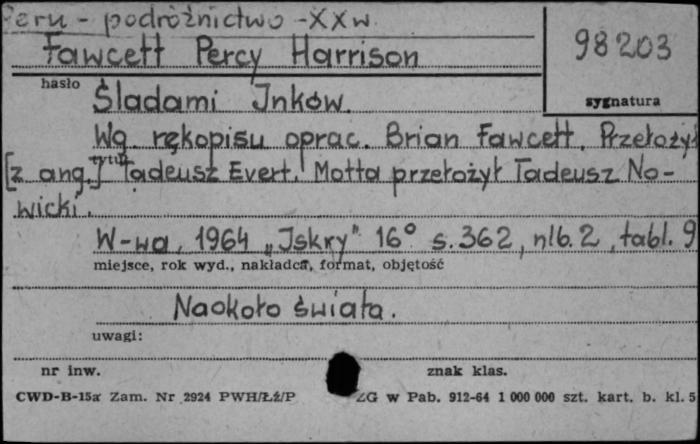 Peru - podróżnictwo - XX w.
Fawcett Percy Harrison
98203
hasło
sygnatura
Śladami Inków.
Wg. rękopisu oprac. Brian Fawcett. Przełożył
tytuł
[z ang.] Tadeusz Evert. Motta przełożył Tadeusz No-
wicki.
W-wa, 1964 „Iskry" 16° s. 362, nlb. 2, tabl. 9
miejsce, rok wyd., nakładca, format, objętość
Naokoło świata.
uwagi:
nr inw.
znak klas.
CWD-B-15a Zam. Nr 2924 PWH/Łź/P ZG w Pab. 912-64 1 000 000 szt. kart. b. kl. 5